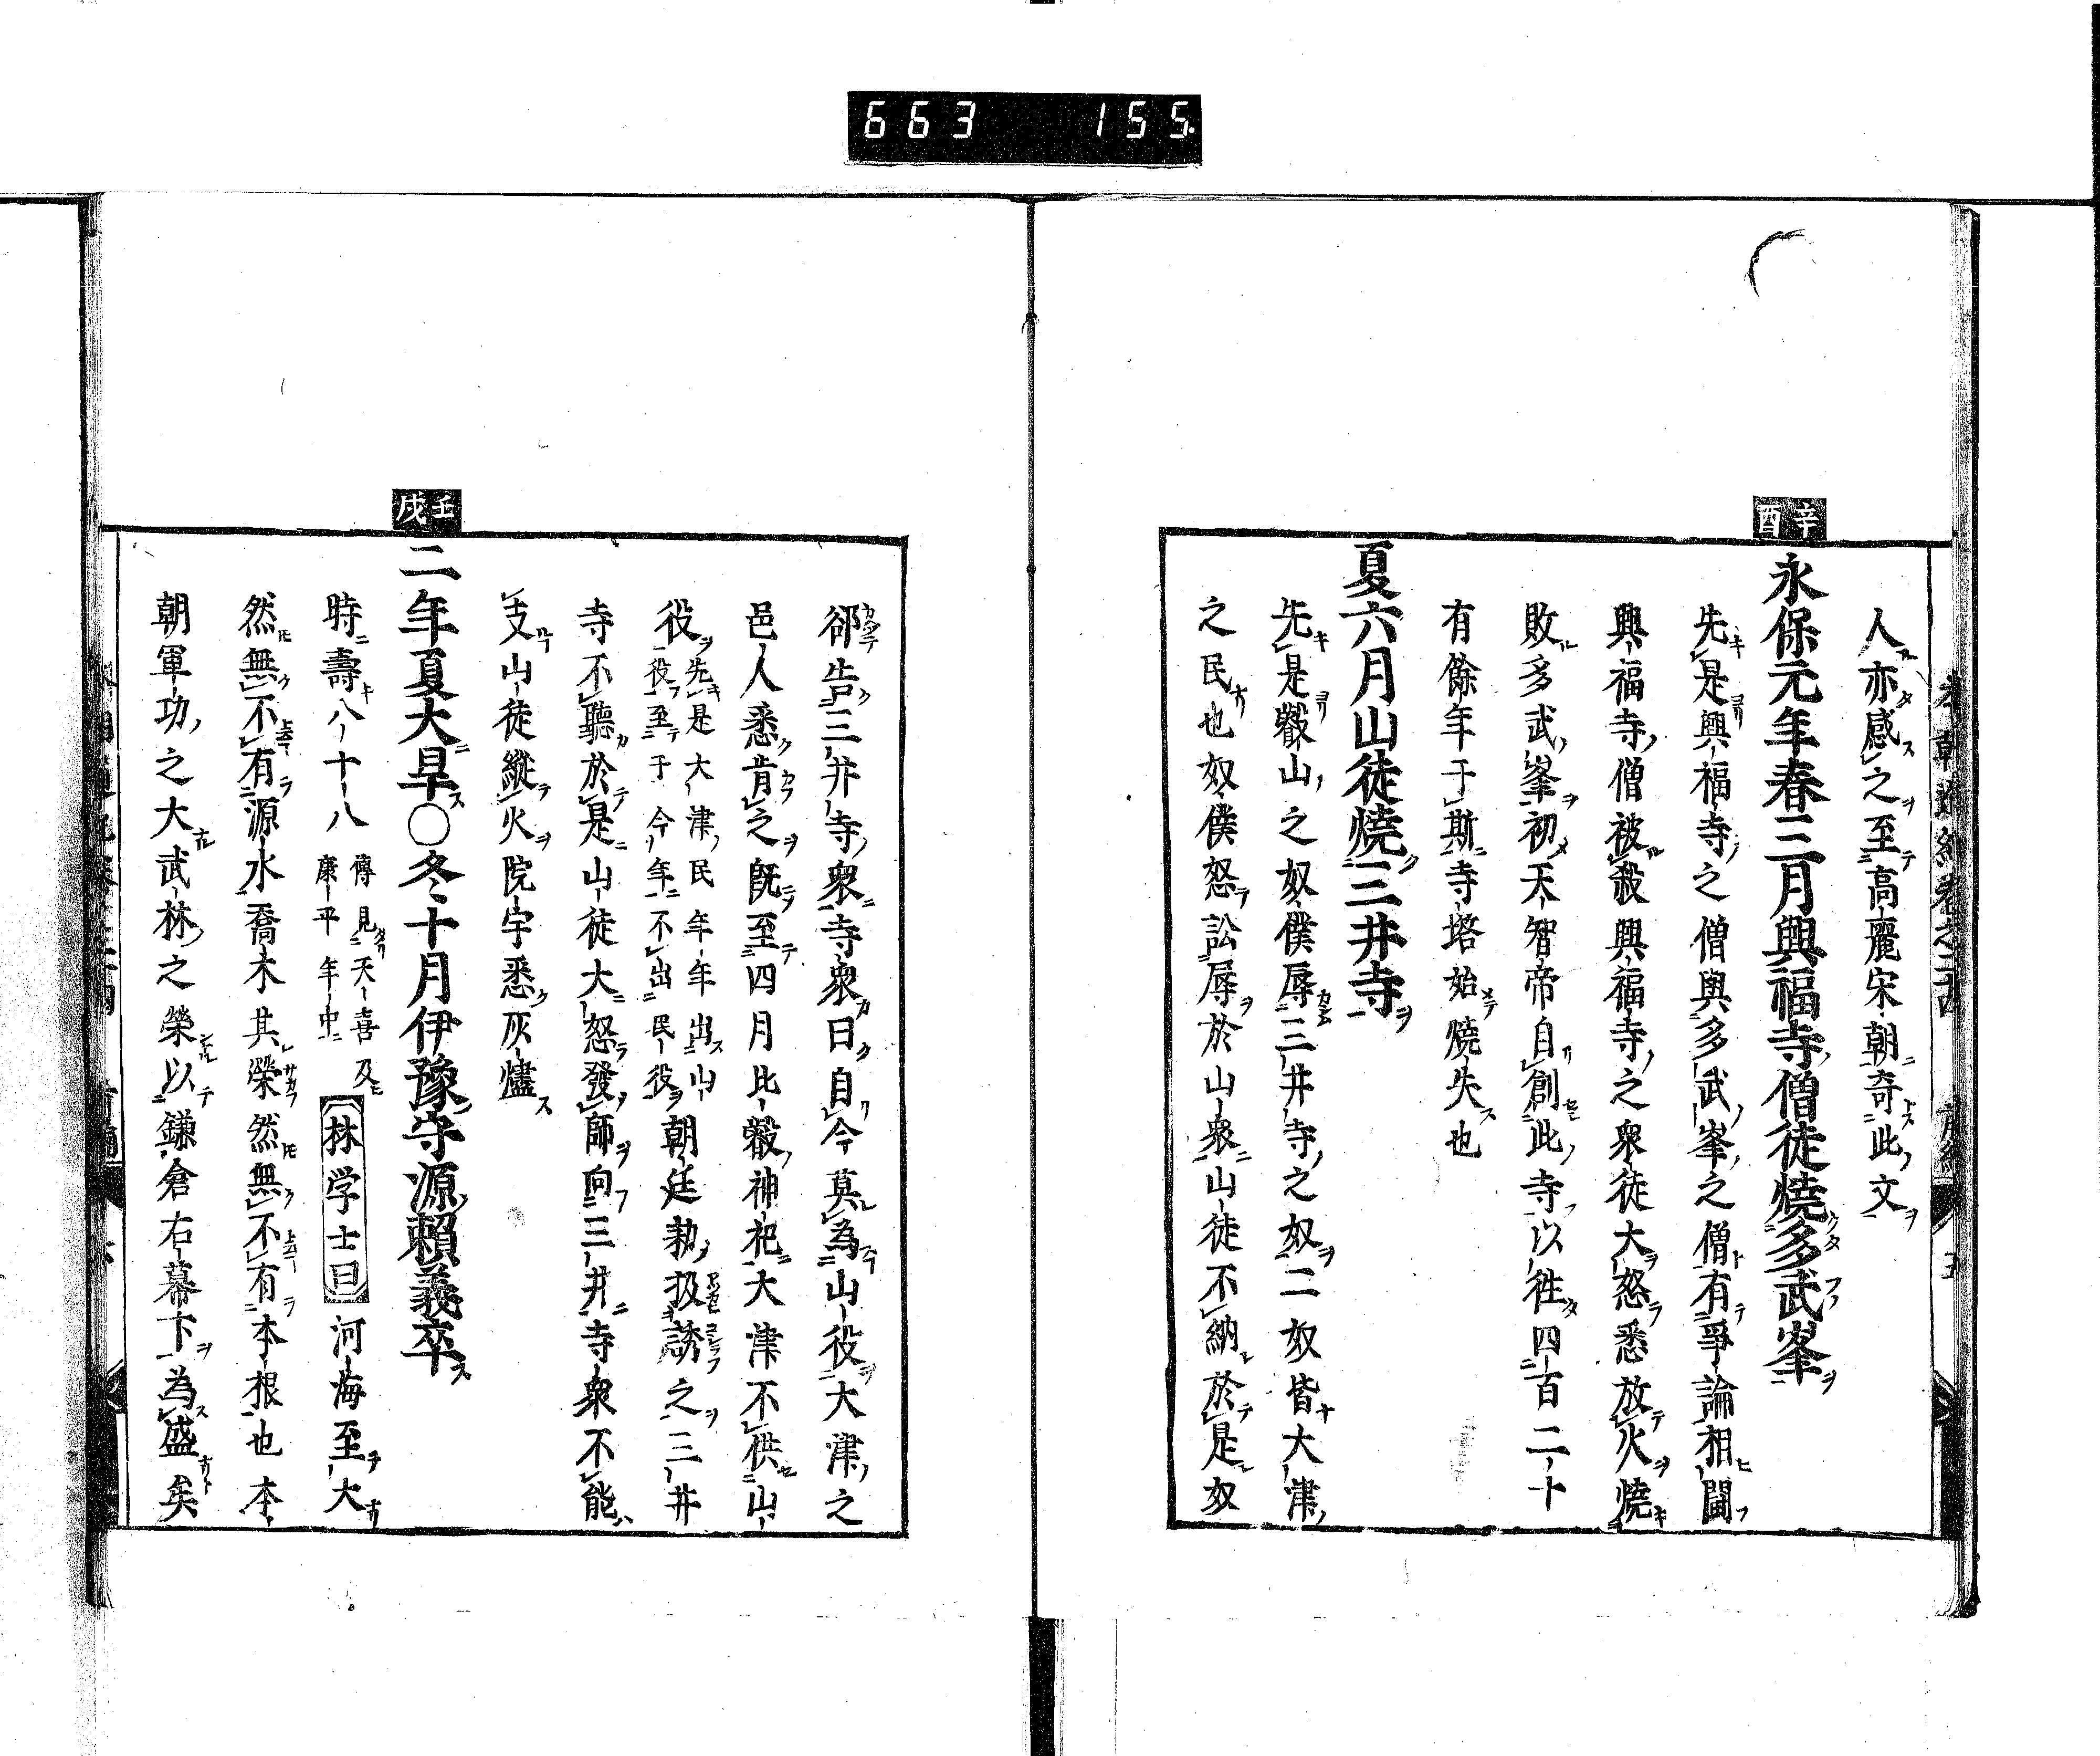 663 155
辛酉
人亦感之至高麗宋朝奇此文
永保元年春三月興福寺僧徒燒多武峯
先是興福寺之僧與多武峯之僧有爭論相鬪
興福寺僧被殺興福寺之衆徒大怒悉放火燒
敗多武峯初天智帝自創此寺以徃四百二十
有餘年于斯寺塔始燒失也
夏六月山徒燒三井寺
先是叡山之奴僕辱三井寺之奴二奴皆大津
之民也奴僕怒訟辱於山衆山徒不納於是奴
壬戌
郤告三井寺衆寺衆曰自今莫為山役大津之
邑人悉肯之既至四月比叡神祀大津不供山
役先是大津民年年出山役至于今年不出民役朝廷勅扱誘之三井
寺不聽於是山徒大怒發師向三井寺衆不能
支山徒縱火院宇悉灰燼
二年夏大旱○冬十月伊豫守源賴義卒
時壽八十八傳見天喜及康平年中林学士曰河海至大
然無不有源水喬木其榮然無不有本根也本
朝軍功之大武林之榮以鎌倉右幕下為盛矣